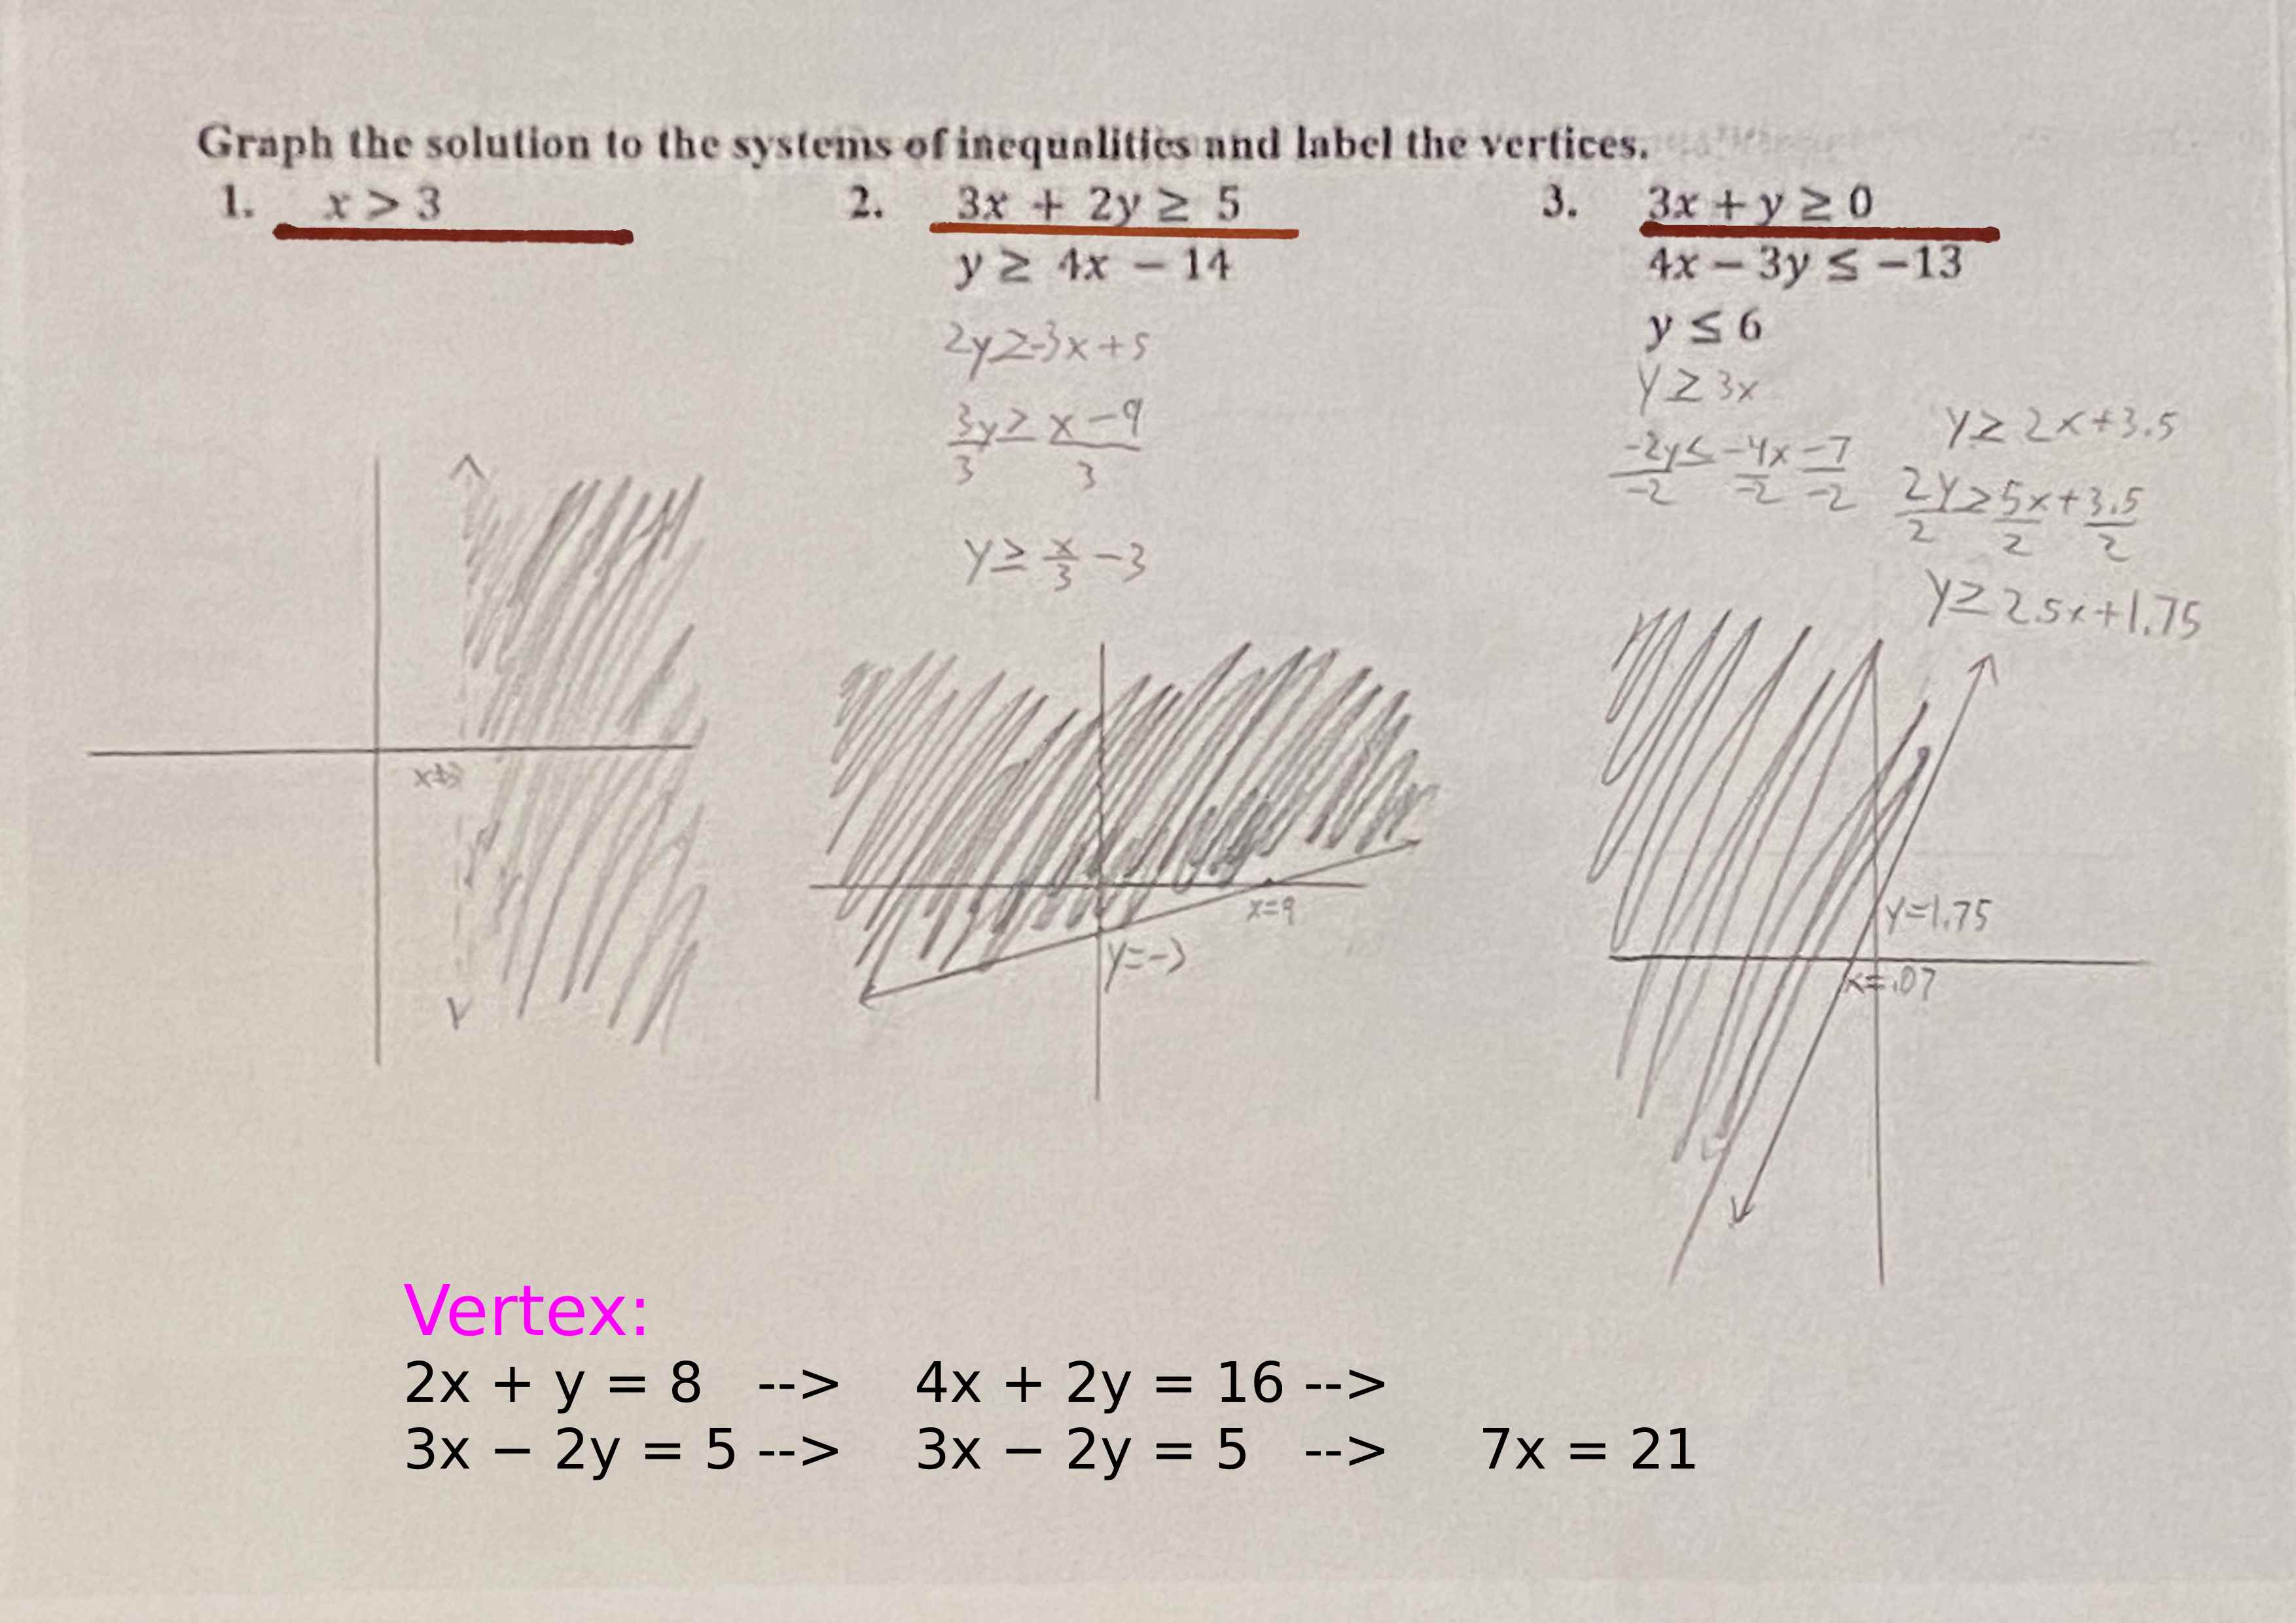 Graph the solution to the systems of inequalities and label the vertices.
1. x > 3
2. 3x + 2y ≥ 5
y ≥ 4x − 14
2y≥-3x+5
3y/3 ≥ x−9/3
y≥ x/3 −3
3. 3x + y ≥ 0
4x − 3y ≤ −13
y ≤ 6
y ≥ 3x
-2y/-2 ≤ -4x/-2 -7/-2
y≥ 2x+3.5
2y/2 ≥ 5x/2 + 3.5/2
y≥2.5x+1.75
x=9
y=-3
y=1.75
x=.07
Vertex:
2x + y = 8 --> 4x + 2y = 16 -->
3x − 2y = 5 --> 3x − 2y = 5 --> 7x = 21